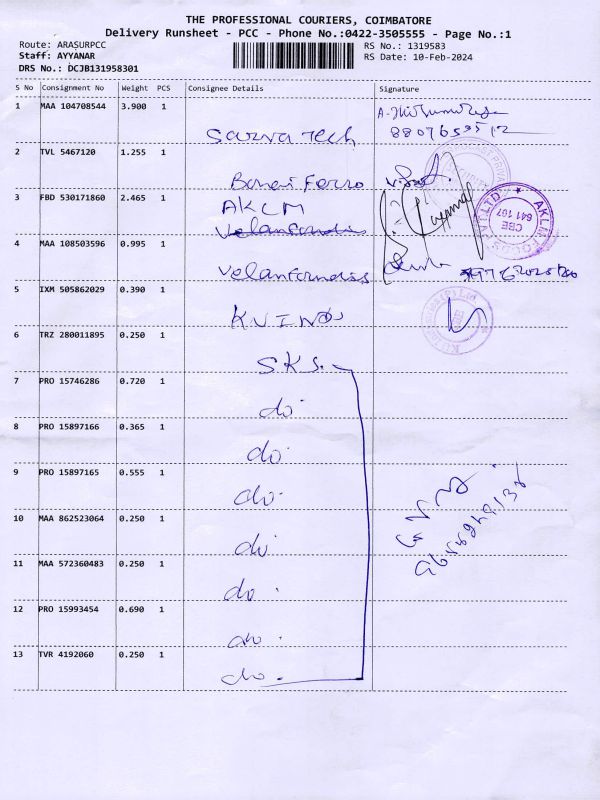 THE PROFESSIONAL COURIERS, COIMBATORE
Delivery Runsheet - PCC - Phone No.:0422-3505555 - Page No.:1
Route: ARASURPCC
RS No.: 1319583
Staff: AYYANAR
RS Date: 10-Feb-2024
DRS No.: DCJB131958301
S No Consignment No Weight PCS Consignee Details Signature
1 MAA 104708544 3.900 1
Sarva Tech
2 TVL 5467120 1.255 1
3 FBD 530171860 2.465 1
AKLM
4 MAA 108503596 0.995 1
5 IXM 505862029 0.390 1
6 TRZ 280011895 0.250 1
SKS.
7 PRO 15746286 0.720 1
do.
8 PRO 15897166 0.365 1
do.
9 PRO 15897165 0.555 1
do.
10 MAA 862523064 0.250 1
do
11 MAA 572360483 0.250 1
do.
12 PRO 15993454 0.690 1
do.
13 TVR 4192060 0.250 1
do.
AKLM
CBE
641 107